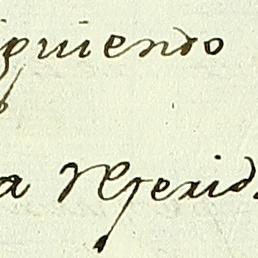 iguiendo
a Referid